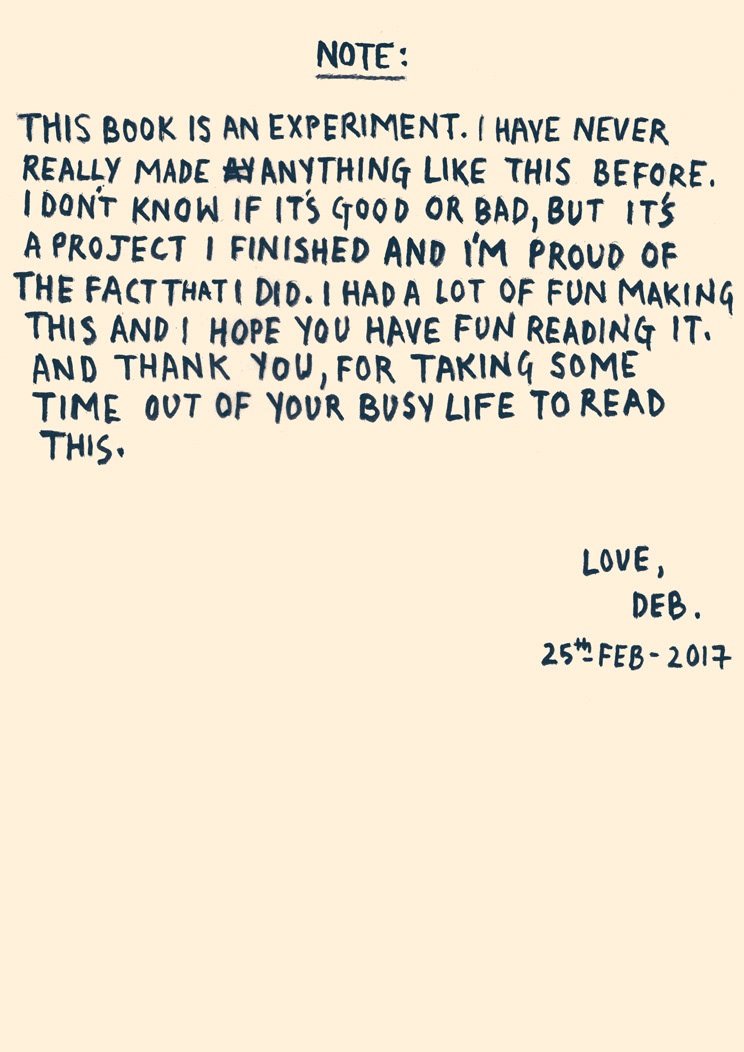 NOTE:
THIS BOOK IS AN EXPERIMENT. I HAVE NEVER
REALLY MADE ANYTHING LIKE THIS BEFORE.
I DON'T KNOW IF IT'S GOOD OR BAD, BUT IT'S
A PROJECT I FINISHED AND I'M PROUD OF
THE FACT THAT I DID. I HAD A LOT OF FUN MAKING
THIS AND I HOPE YOU HAVE FUN READING IT.
AND THANK YOU, FOR TAKING SOME
TIME OUT OF YOUR BUSY LIFE TO READ
THIS.
LOVE,
DEB.
25th FEB - 2017